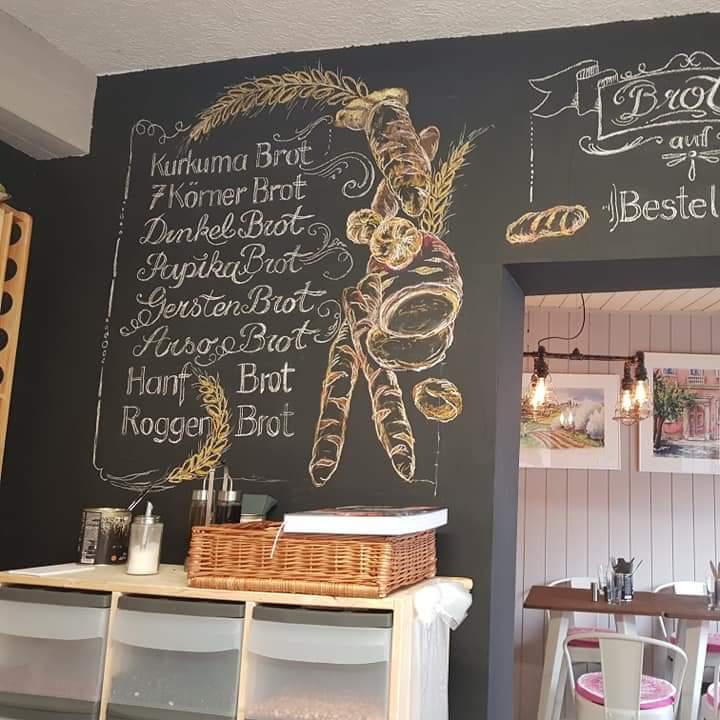 Kurkuma Brot
7 Körner Brot
Dinkel Brot
Papika Brot
Gersten Brot
Arso Brot
Hanf Brot
Roggen Brot
Brot
auf
Bestel